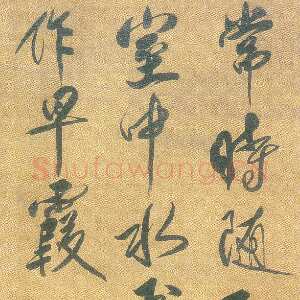 常時随
室中水
作早霞
Shufawang.cn